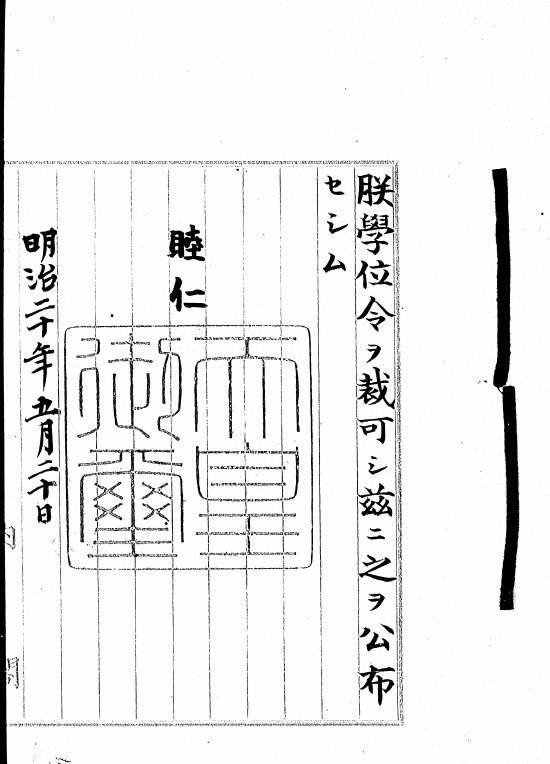 朕學位令ヲ裁可シ茲ニ之ヲ公布
セシム
睦仁
天皇
御璽
明治二十年五月二十日